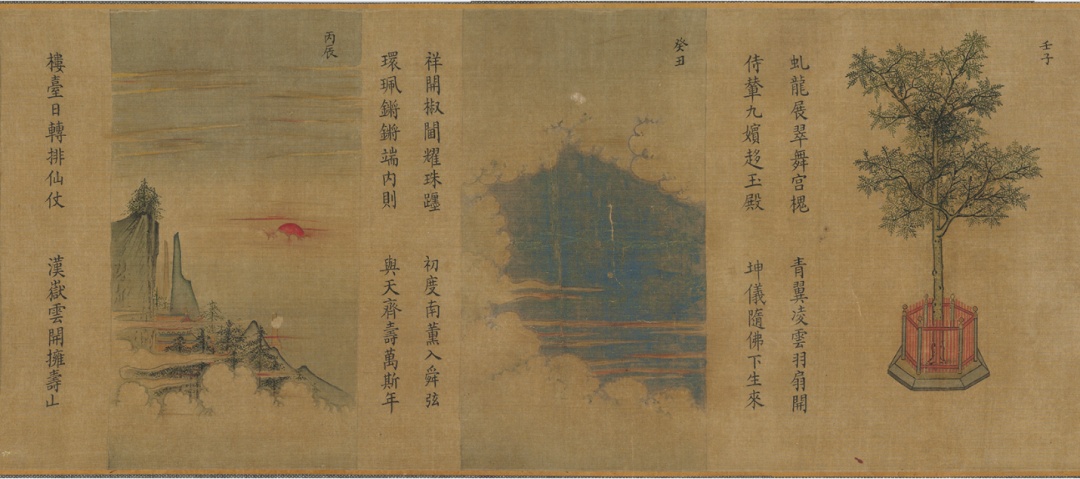 壬子
虬龍展翠舞宮槐 青翼凌雲羽扇開
侍輦九嬪趍玉殿 坤儀隨佛下生來
癸丑
祥開椒閫耀珠躔 初度南薰入舜弦
環珮鏘鏘端内則 與天齊壽萬斯年
丙辰
樓臺日轉排仙仗 漢嶽雲開擁壽山